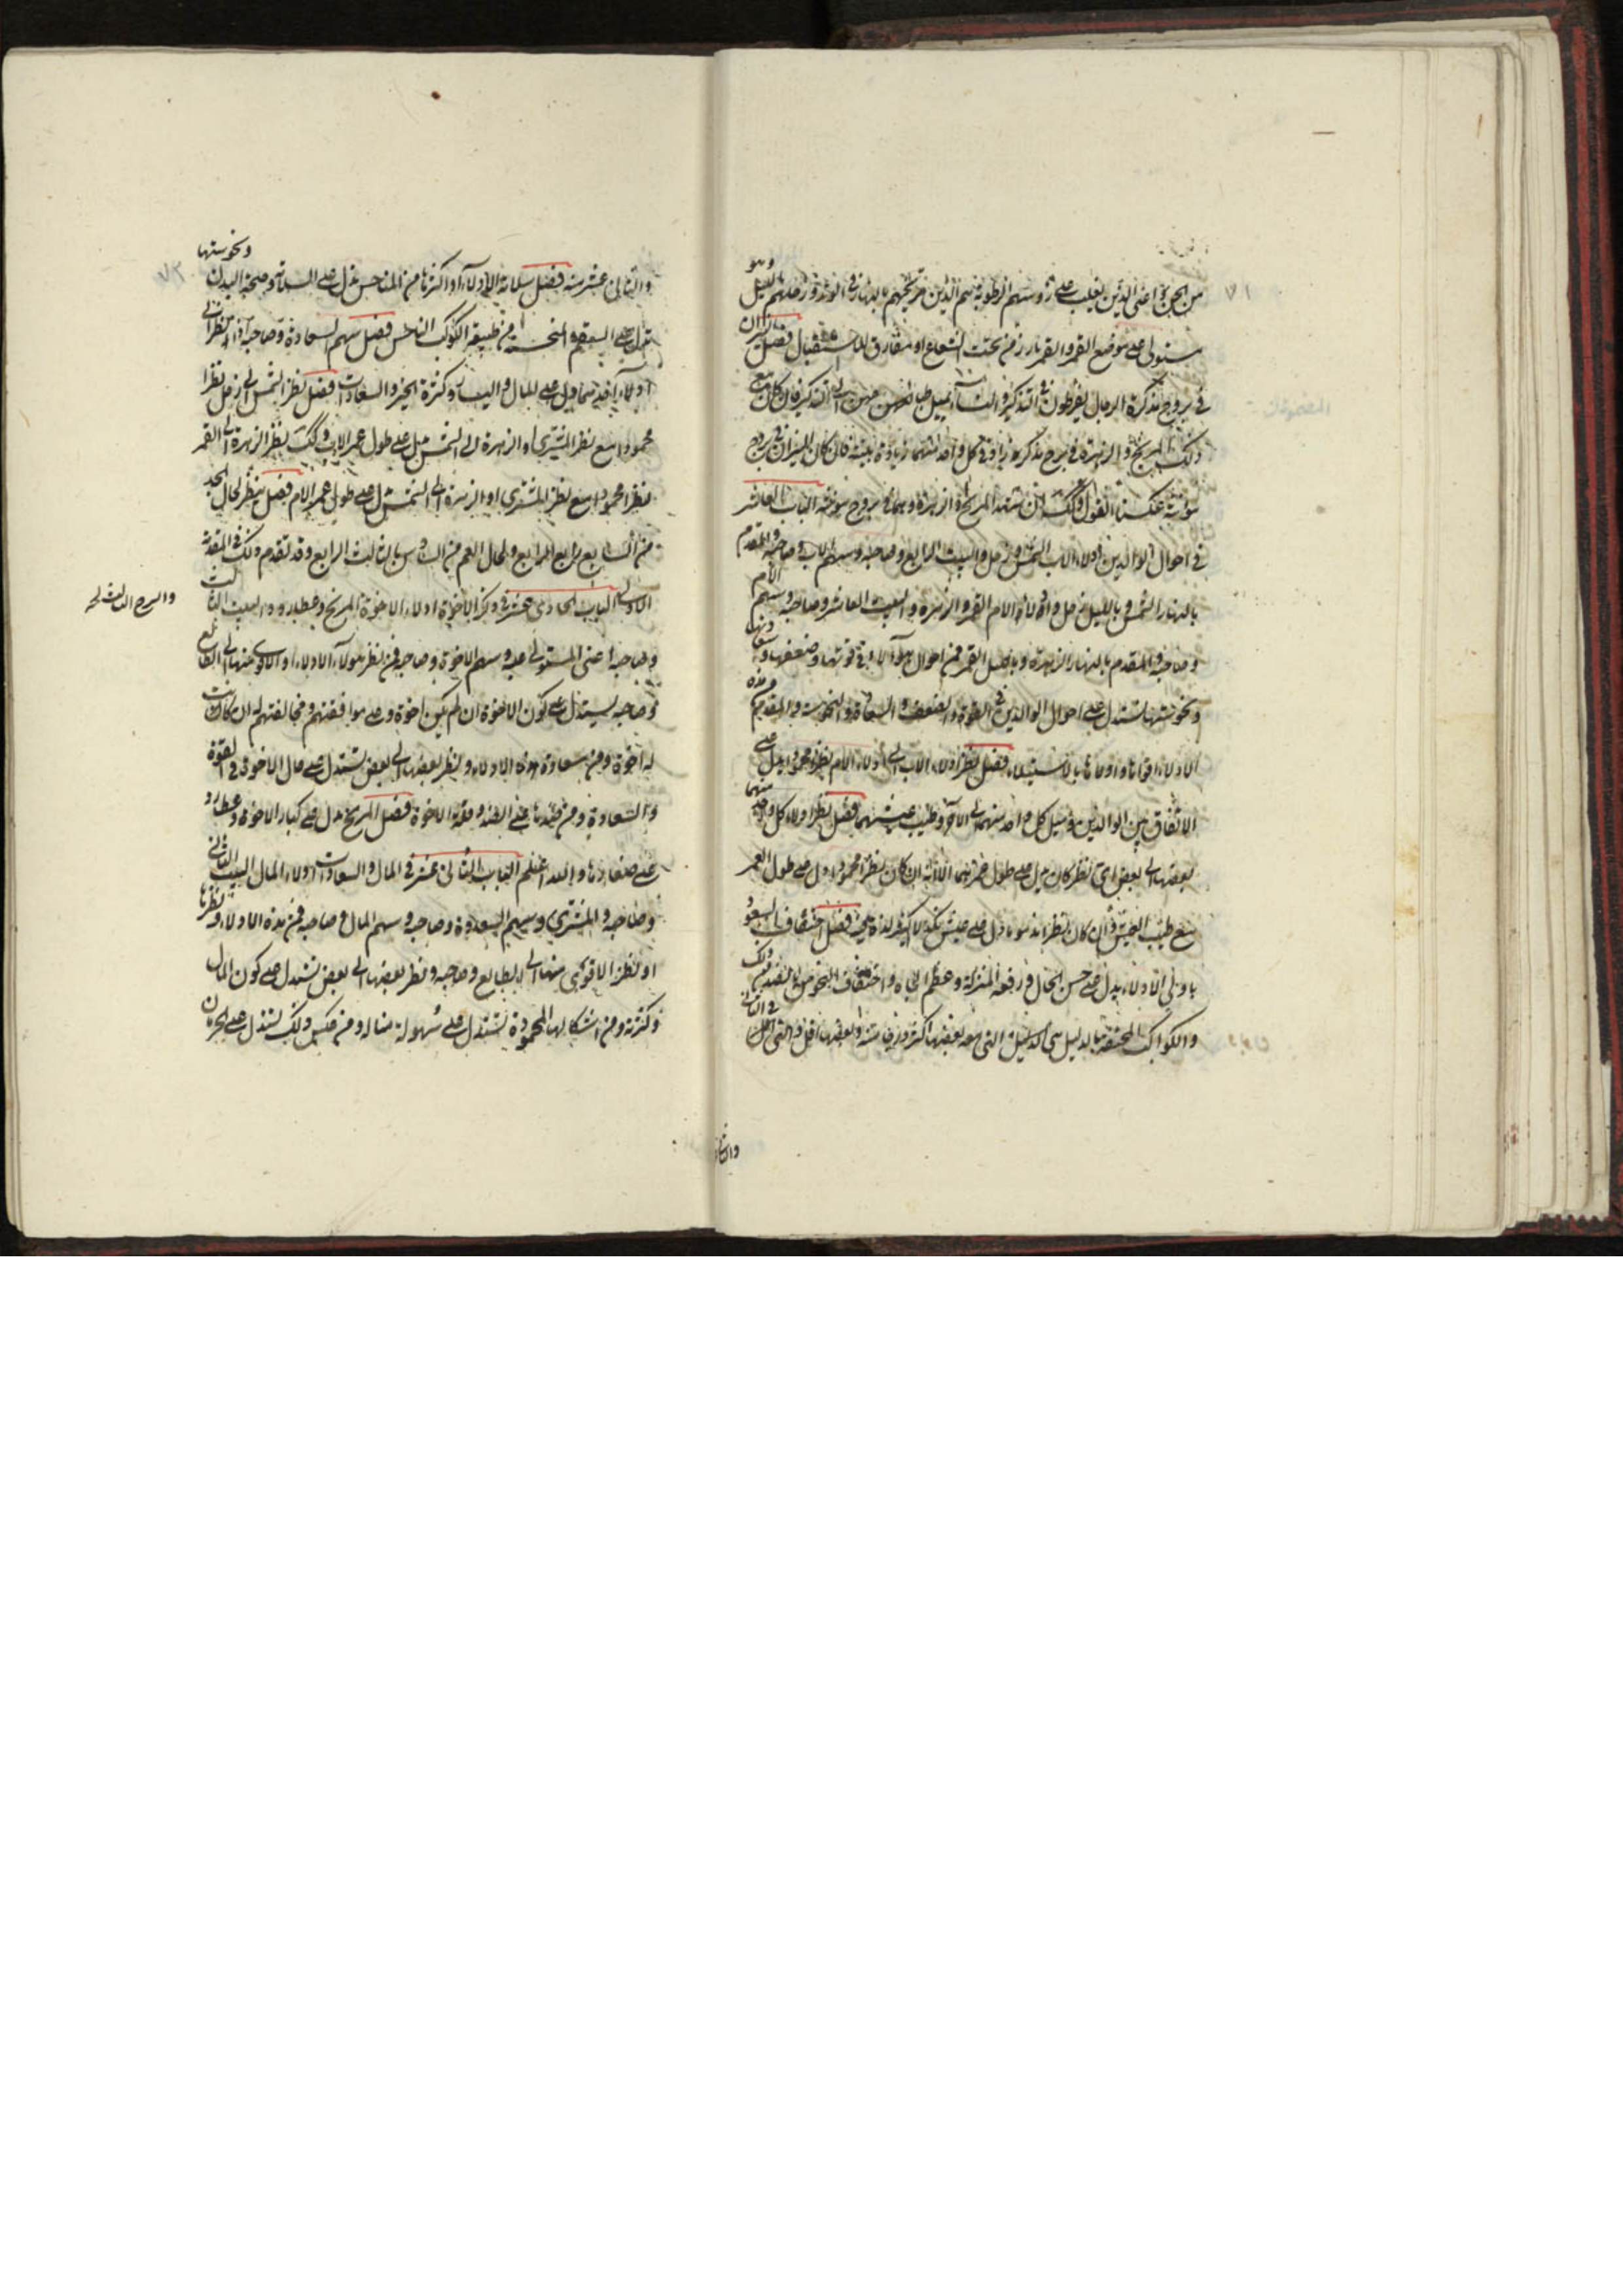 من الجن اعنى الذين يغلب على رؤسهم الرطوبة هم الذين مريخهم بالنهار فى الوتد وزحلهم بالليل وهو
مستولى على موضع القمر والقمر بارز من تحت الشعاع او مفارق للاستقبال فصل النيران
فى بروج مذكرة الرجال يفرطون فى التذكير والنساء يميل طباعهن الى التذكير فان كان مع
ذلك المريخ والزهرة فى برج مذكر زاد فى كل واحد منهما زيادة بينة فان كان النيران فى بروج
مؤنثة عكسنا القول وكذلك ان شهد المريخ والزهرة وهما فى بروج مؤنثة الباب العاشر
فى احوال الوالدين ادلاء الاب الشمس وزحل والبيت الرابع وصاحبه وسهم الاب وصاحبه والمقدم
بالنهار الشمس وبالليل زحل وادلاء الام القمر والزهرة والبيت العاشر وصاحبه وسهم الام
وصاحبه والمقدم بالنهار الزهرة وبالليل القمر فمن احوال هولاء الادلاء فى قوتها وضعفها وسعادتها
ونحوستها تستدل على احوال الوالدين فى القوة والضعف والسعادة والنحوسة والمقدم من هذه
الادلاء اقواها واولاها بالاستيلاء فصل نظر ادلاء الاب الى ادلاء الام نظرا محمودا يدل على
الاتفاق بين الوالدين وميل كل واحد منهما الى الاخر وطيب عيشهما فصل نظر ادلاء كل واحد منهما
بعضها الى بعض اى نظر كان يدل على طول عمرهما الا انه ان كان نظرا محمودا دل على طول العمر
مع طيب العيش وان كان نظرا مذموما دل على عيش نكد لا كثير لذة فيه فصل احتفاف السعود
باولى الادلاء يدل على حسن الحال ورفعة المنزلة وعظم الجاه واحتفاف النحوس بالضد من ذلك
والكواكب المحتفة بالدليل هى الدليل التى بعضها اكثر درجا منه وبعضها اقل والتى اقل فى الثانى
والثانى
والثانى عشر منه فصل سلامة الادلاء او اكثرها من المناحس يدل على السلامة وصحة البدن ونحوستها
تدل على السقم والمنحسة من طبيعة الكوكب الناحس فصل سهم السعادة وصاحبه اذا نظرا الى
ادلاء احدهما دل على المال واليسار وكثرة الخير والسعادات فصل نظر الشمس الى زحل نظرا
محمودا مع نظر المشترى او الزهرة الى الشمس يدل على طول عمر الاب وكذلك نظر الزهرة الى القمر
نظرا محمودا مع نظر المشترى او الزهرة الى الشمس يدل على طول عمر الام فصل ينظر لحال الجد
من السابع رابع الرابع ولحال العم من السادس ثالث الرابع وقد تقدم ذلك فى المقدمة
الاولى الباب الحادى عشر فى ذكر الاخوة ادلاء الاخوة المريخ وعطارد والبيت الثالث
وصاحبه اعنى المستولى عليه وسهم الاخوة وصاحبه فمن نظر هولاء الادلاء او الاقوى منها الى الطالع
وصاحبه يستدل على كون الاخوة ان لم يكن اخوة وعلى موافقتهم ومخالفتهم له ان كانت
له اخوة ومن سعادة هذه الادلاء ونظر بعضها الى بعض تستدل على حال الاخوة فى القوة
والسعادة ومن ضدها على الضد وقلة الاخوة فصل المريخ يدل على كبار الاخوة وعطارد
على صغارها والله اعلم الباب الثانى عشر فى المال والسعادات ادلاء المال البيت الثانى
وصاحبه والمشترى وسهم السعادة وصاحبه وسهم المال وصاحبه فمن هذه الادلاء ونظرها
او نظر الاقوى منها الى الطالع وصاحبه ونظر بعضها الى بعض تستدل على كون المال
وكثرته ومن اشكالها المحمودة تستدل على سهولة مناله ومن عكس ذلك تستدل على الحرمان
والبرج الثالث